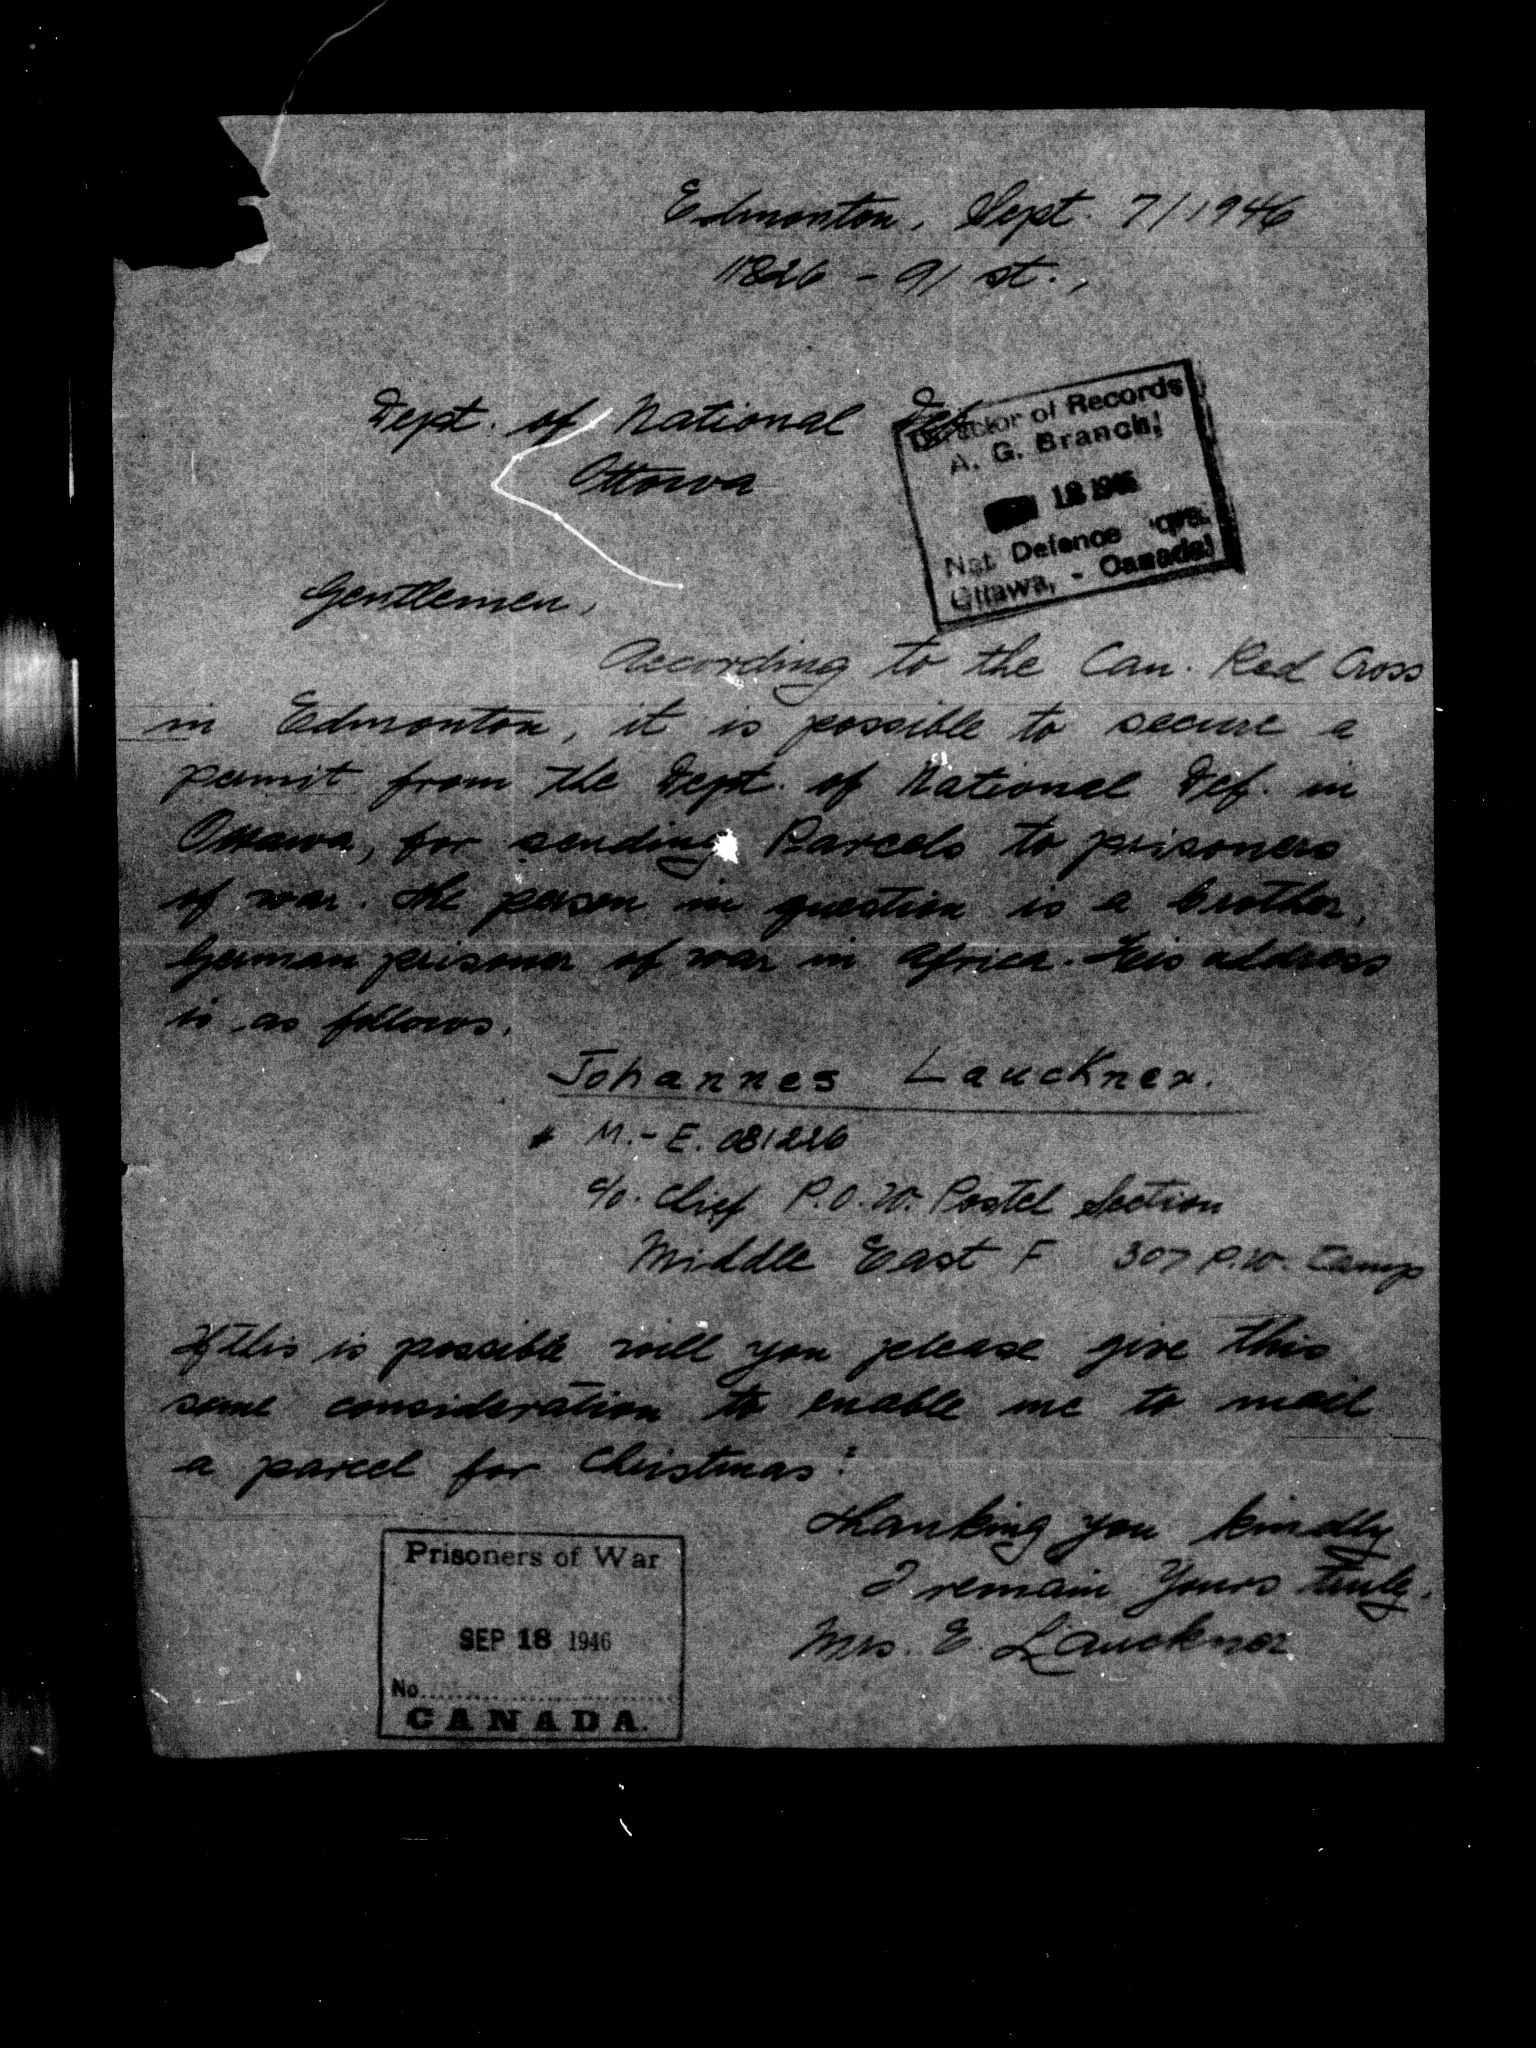 Edmonton, Sept. 7/1946
11826 - 91 st.,
Dept. of National Def
Ottawa
Director of Records
A. G. Branch
18 1946
Nat. Defence
Ottawa, - Canada
Gentlemen,
According to the Can. Red Cross
in Edmonton, it is possible to secure a
permit from the Dept. of National Def. in
Ottawa, for sending Parcels to prisoners
of war. The person in question is a brother,
German prisoner of war in Africa. His address
is as follows.
Johannes Lauckner.
# M.-E. 081226
c/o. Chief P.O.W. Postel Section
Middle East F 307 P.W. Camp
If this is possible will you please give this
some consideration to enable me to mail
a parcel for Christmas?
Thanking you kindly
I remain Yours truly.
Mrs. E. Lauckner
Prisoners of War
SEP 18 1946
No.
CANADA.